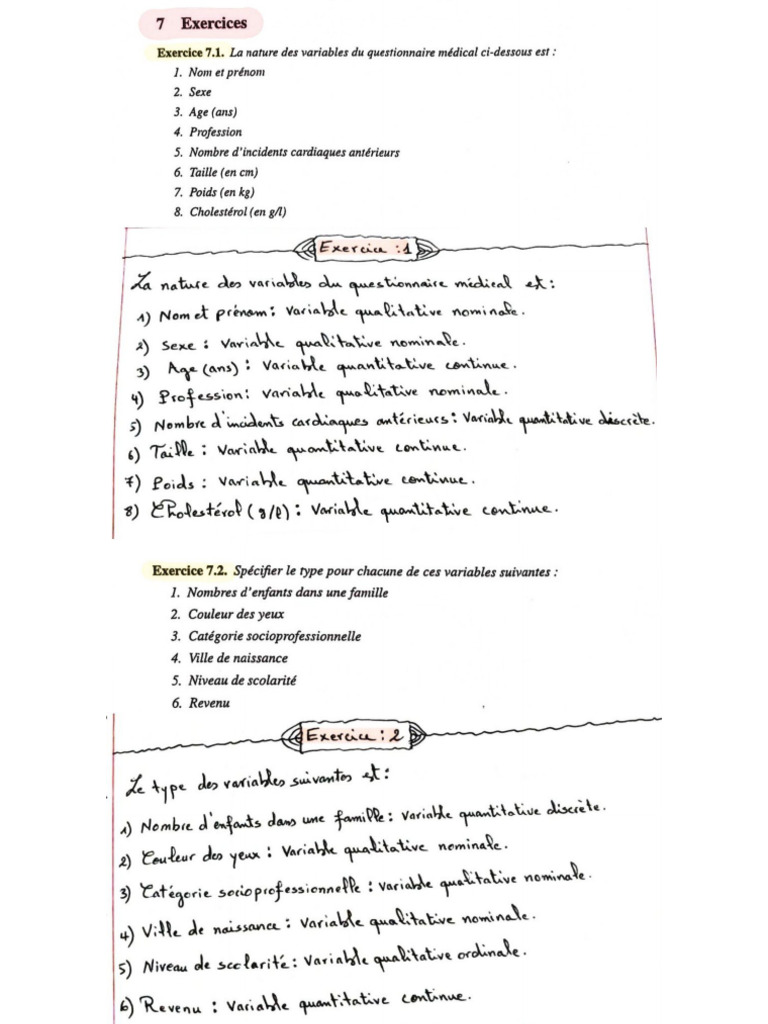 7 Exercices
Exercice 7.1. La nature des variables du questionnaire médical ci-dessous est :
1. Nom et prénom
2. Sexe
3. Age (ans)
4. Profession
5. Nombre d'incidents cardiaques antérieurs
6. Taille (en cm)
7. Poids (en kg)
8. Cholestérol (en g/l)
Exercice : 1
La nature des variables du questionnaire médical est :
1) Nom et prénom : Variable qualitative nominale.
2) Sexe : Variable qualitative nominale.
3) Age (ans) : Variable quantitative continue.
4) Profession : Variable qualitative nominale.
5) Nombre d'incidents cardiaques antérieurs : Variable quantitative discrète.
6) Taille : Variable quantitative continue.
7) Poids : Variable quantitative continue.
8) Cholestérol (g/l) : Variable quantitative continue.
Exercice 7.2. Spécifier le type pour chacune de ces variables suivantes :
1. Nombres d'enfants dans une famille
2. Couleur des yeux
3. Catégorie socioprofessionnelle
4. Ville de naissance
5. Niveau de scolarité
6. Revenu
Exercice : 2
Le type des variables suivantes est :
1) Nombre d'enfants dans une famille : Variable quantitative discrète.
2) Couleur des yeux : Variable qualitative nominale.
3) Catégorie socioprofessionnelle : Variable qualitative nominale.
4) Ville de naissance : Variable qualitative nominale.
5) Niveau de scolarité : Variable qualitative ordinale.
6) Revenu : Variable quantitative continue.